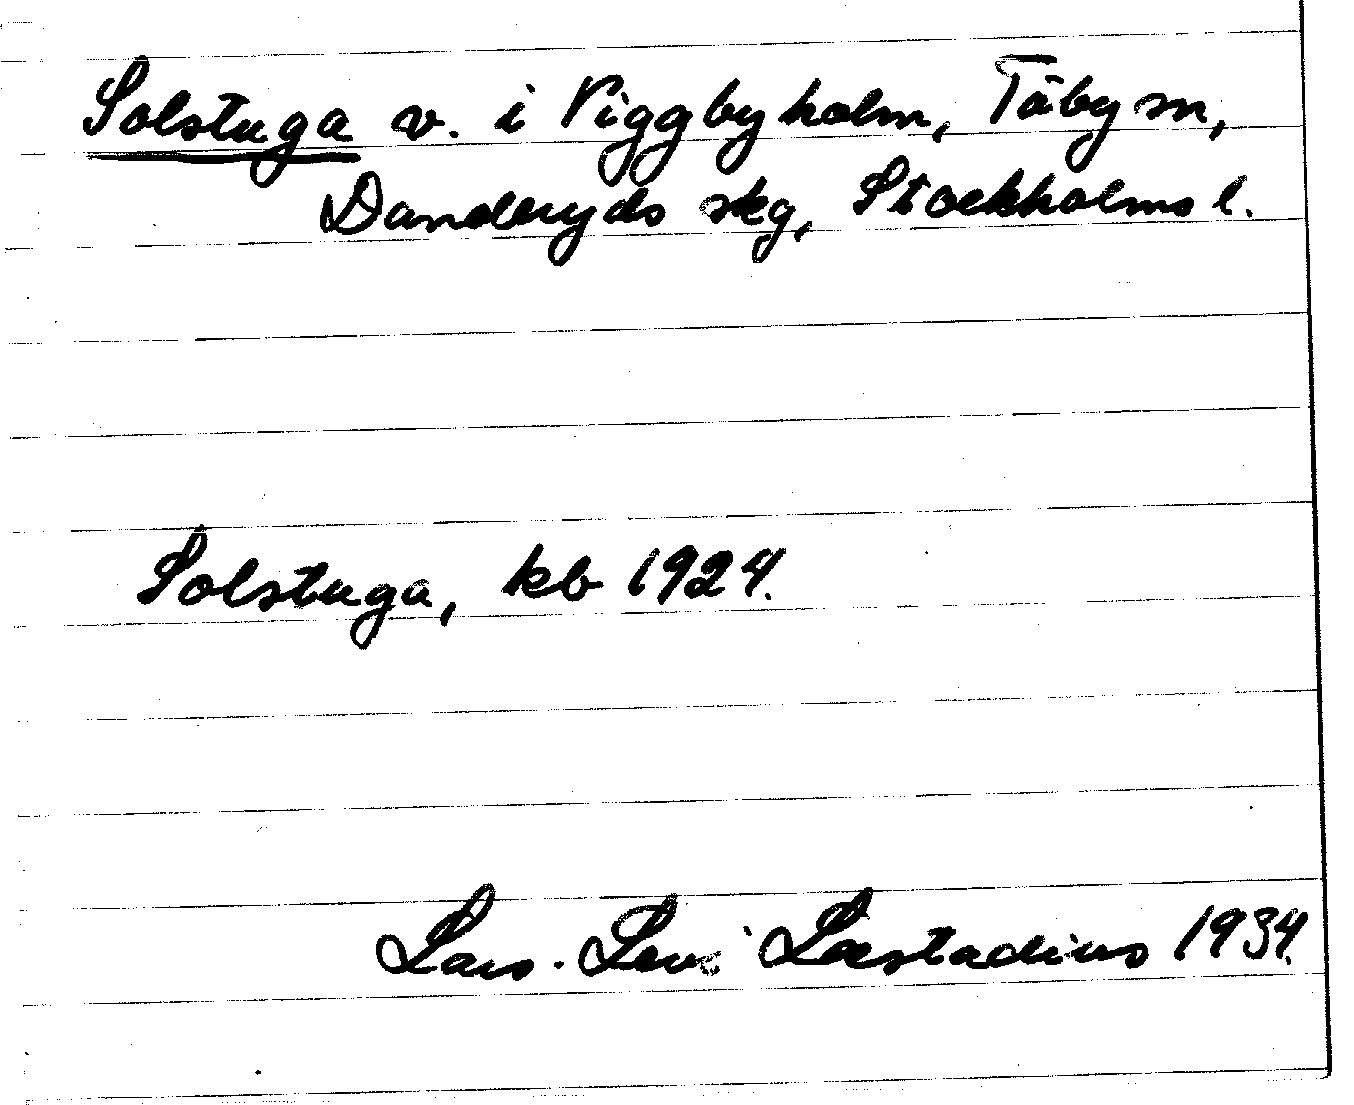 Solstuga v. i Viggbyholm, Täby sn,
Danderyds skg, Stockholms l.
Solstuga, kb 1924.
Lars-Levi Læstadius 1934.